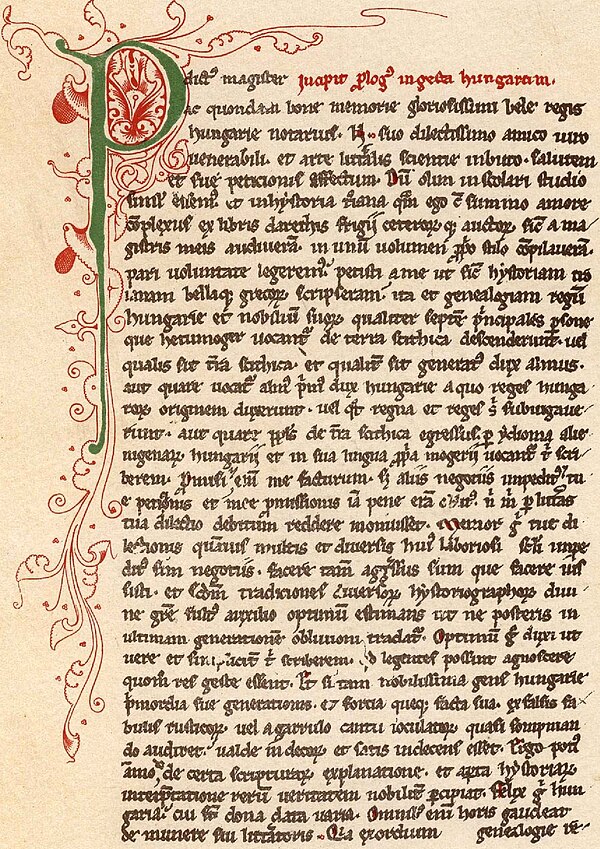 P dictus magister Incipit prologus in gesta hungarorum.
ac quondam bone memorie gloriosissimi bele regis
hungarie notarius. N. suo dilectissimo amico uiro
uenerabili. et arte litteralis scientie inbuto. salutem
et sue peticionis effectum. Dum olim in scolari studio
simul essemus. et in hystoria troiana quam ego cum summo amore
complexus ex libris darethis frigii ceterorumque auctorum, sicut a ma
gistris meis audiueram. in unum uolumen proprio stilo compilaueram.
pari uoluntate legeremus. petisti a me ut sicut hystoriam tro
ianam bellaque grecorum scripseram. ita et genealogiam regum
hungarie et nobilium suorum. qualiter septem principales persone
que hetumoger uocantur de terra scithica descenderunt. uel
qualis sit terra scithica. et qualiter sit generatus dux almus.
aut quare uocatur almus primus dux hungarie a quo reges hunga
rorum originem duxerunt. uel quot regna et reges sibi subiugaue
runt. aut quare populus de terra scithica egressus. per ydioma alie
nigenarum hungarii et in sua lingua propria mogerii uocantur tibi scri
berem. Promisi etenim me facturum. sed aliis negociis impeditus. tu
e peticionis et mee promissionis iam pene eram oblitus. nisi mihi per litteras
tua dilectio debitum reddere monuisset. Memor igitur tue di
lectionis quamuis multis et diuersis huius laboriosi seculi impe
ditus sim negotiis. facere tamen aggressus sum que facere ius
sisti. et secundum traditiones diuersorum hystoriographorum diui
ne gratie fultus auxilio optimum estimans ut ne posteris in
ultimam generationem obliuioni tradatur. Optimum ergo duxi ut
uere et simpliciter tibi scriberem. quod legentes possint agnoscere
quomodo res geste essent. Et si tam nobilissima gens hungarie
primordia sue generationis. et fortia queque facta sua. ex falsis fa
bulis rusticorum. uel a garrulo cantu ioculatorum quasi sompnian
do audiret. ualde indecorum et satis indecens esset. Ergo potius
ammodo de certa scripturarum explanatione. et aperta hystoriarum
interpretatione rerum ueritatem nobiliter percipiat. Felix igitur hun
garia. cui sunt dona data uaria. Omnibus enim horis gaudeat
de munere sui litteratoris. Quia exordium genealogie re-